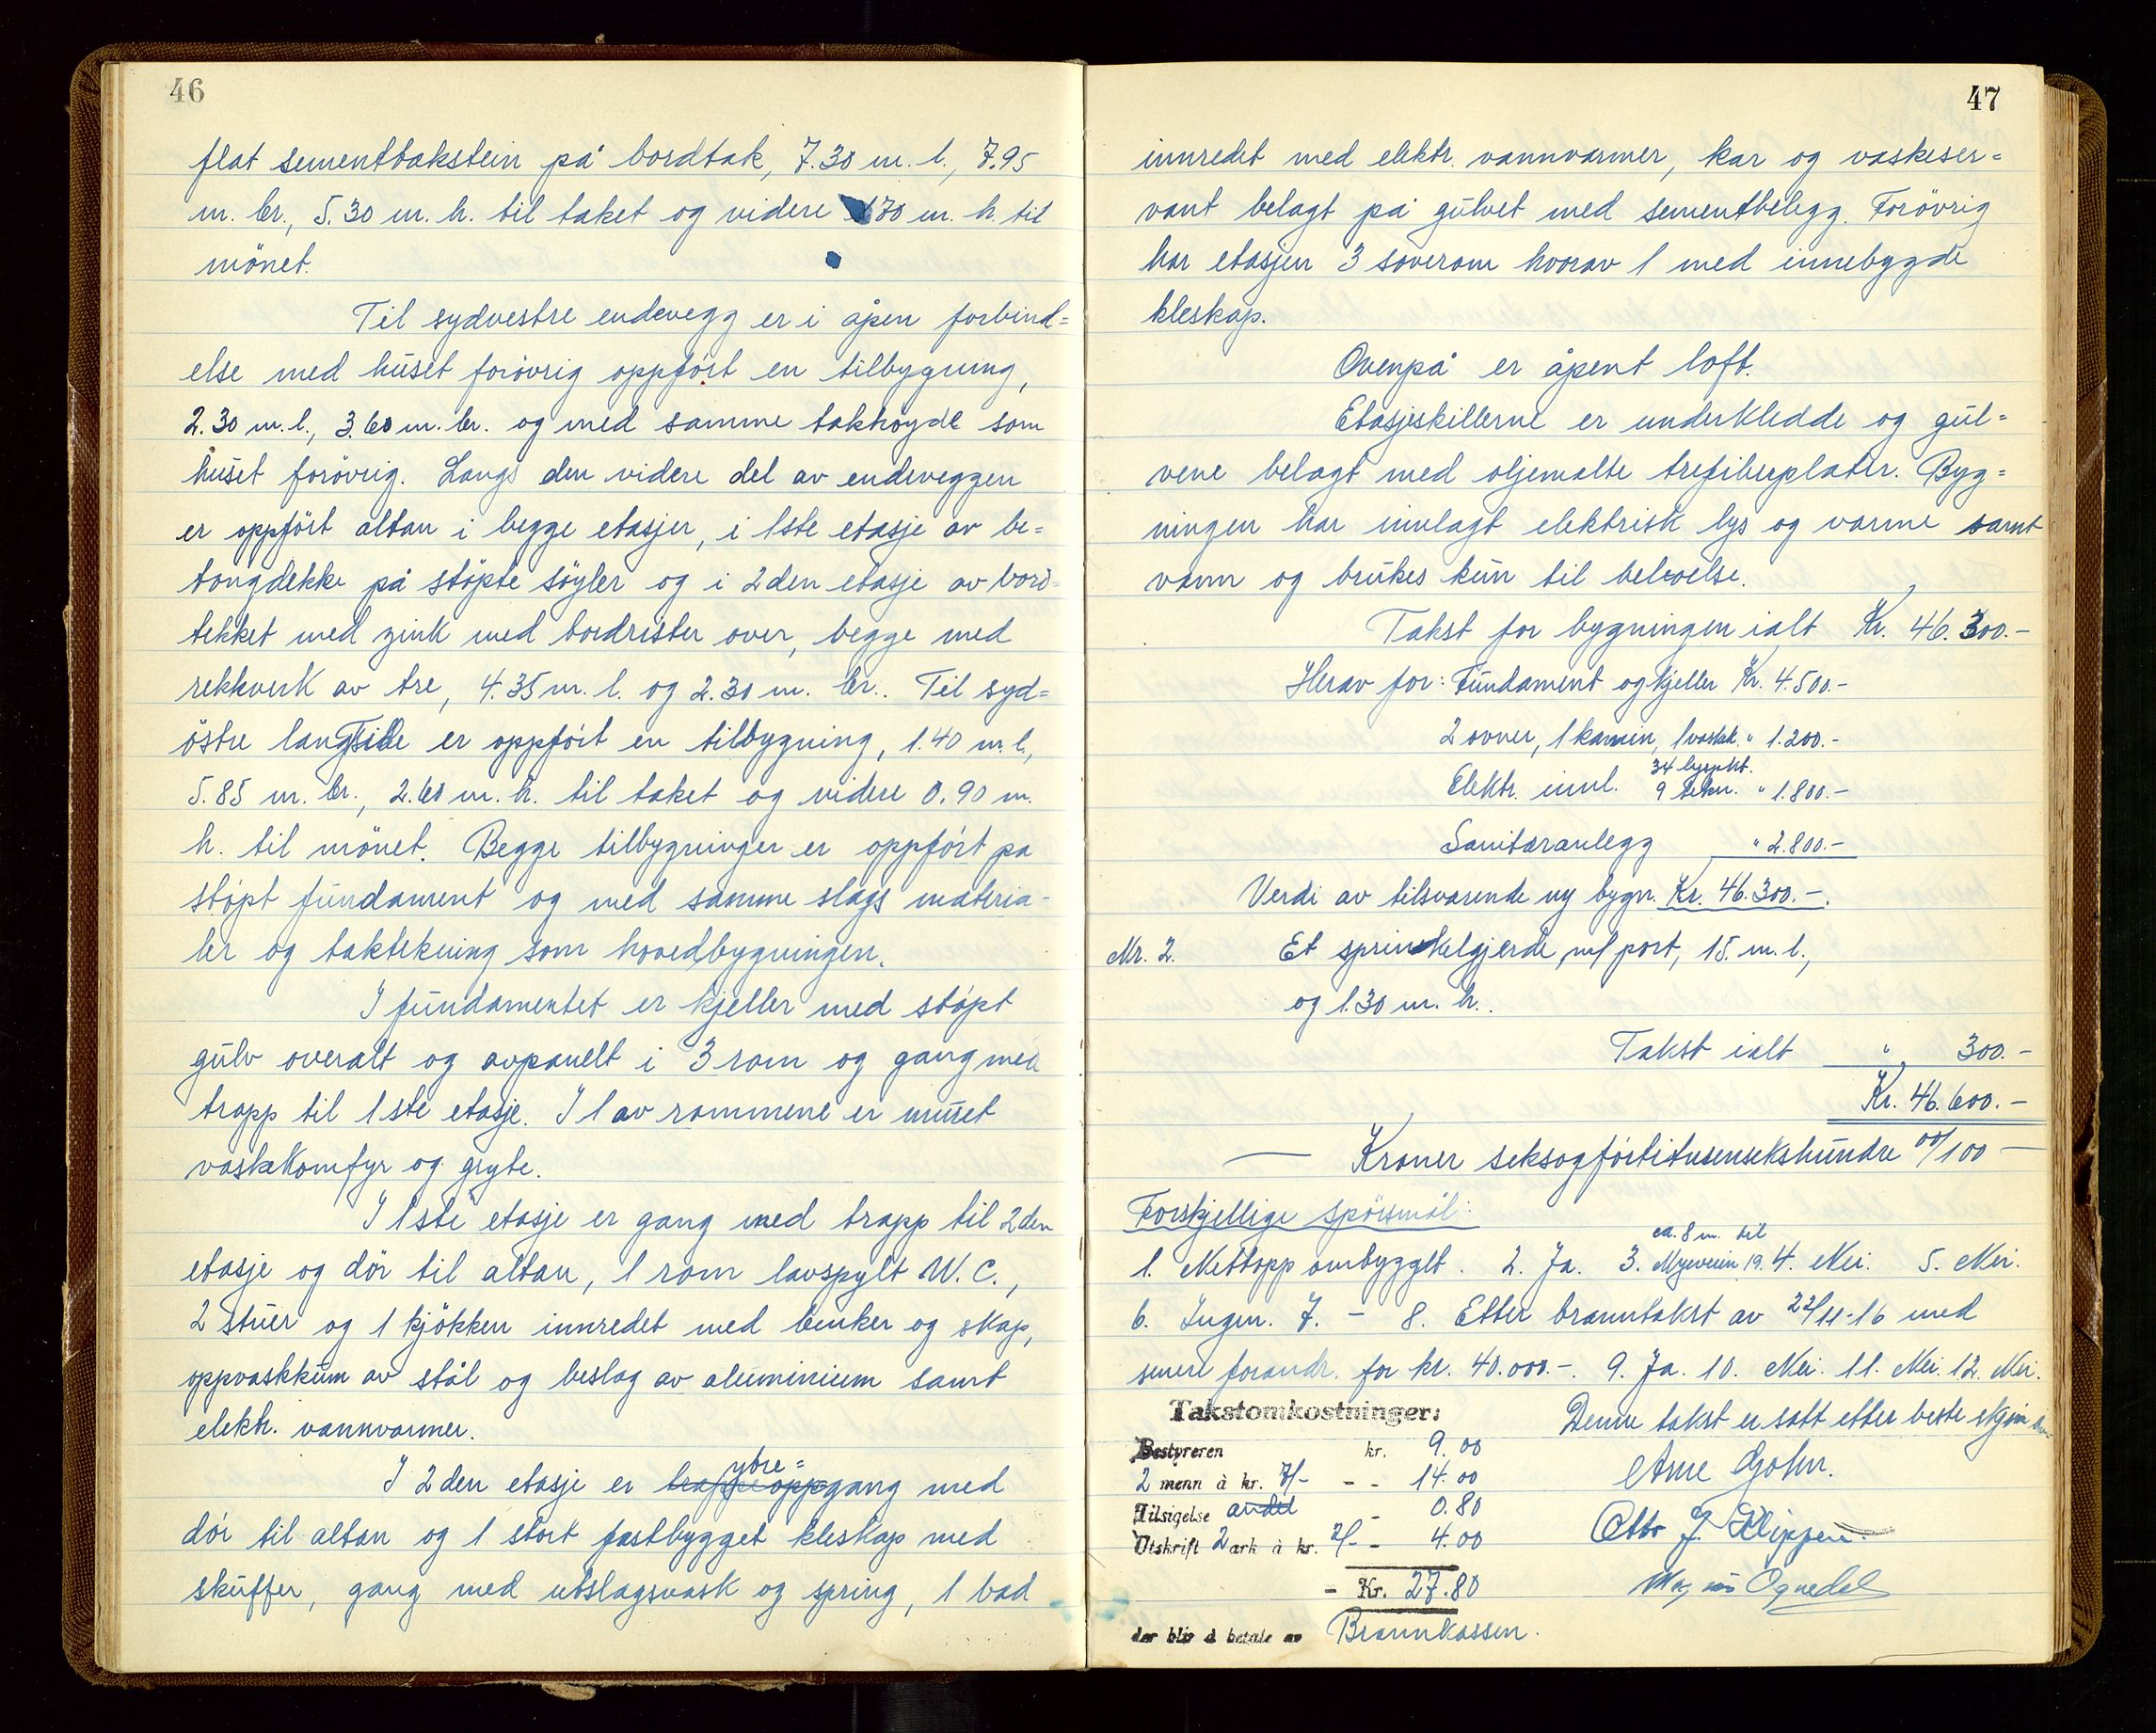 46
flat sementtakstein på bordtak, 7.30 m. l., 7.95
m. br., 5.30 m. h. til taket og videre 1.70 m. h. til
mönet.
Til sydvestre endevegg er i åpen forbind=
else med huset forövrig oppfört en tilbygning,
2.30 m. l., 3.60 m. br. og med samme takhøyde som
huset forövrig. Langs den videre del av endeveggen
er oppfört altan i begge etasjer, i 1ste etasje av be=
tongdekke på stöpte söyler og i 2den etasje av bord=
tekket med zink med bordrister over, begge med
rekkverk av tre, 4.35 m. l. og 2.30 m. br.. Til syd=
östre langside er oppfört en tilbygning, 1.40 m. l.,
5.85 m. br., 2.60 m. h. til taket og videre 0.90 m.
h. til mönet. Begge tilbygninger er oppfört på
stöpt fundament og med samme slags materia-
ler og taktekning som hovedbygningen.
I fundamentet er kjeller med stöpt
gulv overalt og avpanelt i 3 rom og gang med
trapp til 1ste etasje. I 1 av rommene er muret
vaskekomfyr og gryte.
I 1ste etasje er gang med trapp til 2den
etasje og dör til altan, 1 rom lavspylt W.C.,
2 stuer og 1 kjökken innredet med benker og skap,
oppvaskkum av stål og beslag av aluminium samt
elektr. vannvarmer.
I 2den etasje er trappeopp ytre=gang med
dör til altan og 1 stort fastbygget kleskap med
skuffer, gang med utslagsvask og spring, 1 bad
47
innredet med elektr. vannvarmer, kar og vaskeser=
vant belagt på gulvet med sementbelegg. Forövrig
har etasjen 3 soverom hvorav 1 med innebygde
kleskap.
Ovenpå er åpent loft.
Etasjeskillerne er underkledde og gul=
vene belagt med oljemalte trefiberplater. Byg=
ningen har innlagt elektrisk lys og varme samt
vann og brukes kun til beboelse.
Takst for bygningen ialt Kr. 46.300.-
Herav for: Fundament og kjeller Kr. 4.500.-
2 ovner, 1 kamin, 1 vaskek. " 1.200.-
Elektr. innl. 34 lyspkt. 9 tekn. " 1.800.-
Sanitæranlegg " 2.800.-
Verdi av tilsvarende ny bygn. Kr. 46.300.-.
Nr. 2. Et sprinkelgjerde m/ port, 15. m. l.,
og 1.30 m. h..
Takst ialt " 300.-
Kr. 46.600.-
— Kroner seksogförtitusensekshundre 00/100 —
Forskjellige spörsmål:
1. Nettopp ombygget. 2. Ja. 3. ca. 8 m. til Myrveien 19. 4. Nei. 5. Nei.
6. Ingen. 7. - 8. Etter branntakst av 22/11-16 med
senere forandr. for kr. 40.000.-. 9. Ja. 10. Nei. 11. Nei. 12. Nei.
Takstomkostninger:
Bestyreren kr. 9.00
2 menn à kr. 7/- - - 14.00
Tilsigelse andel - 0.80
Utskrift 2 ark à kr. 2/- - 4.00
- Kr. 27.80
der blir å betale av Brannkassen.
Denne takst er satt etter beste skjönn
Arne Gjohn.
Otto J. Klippen.
Magnus Ognedal